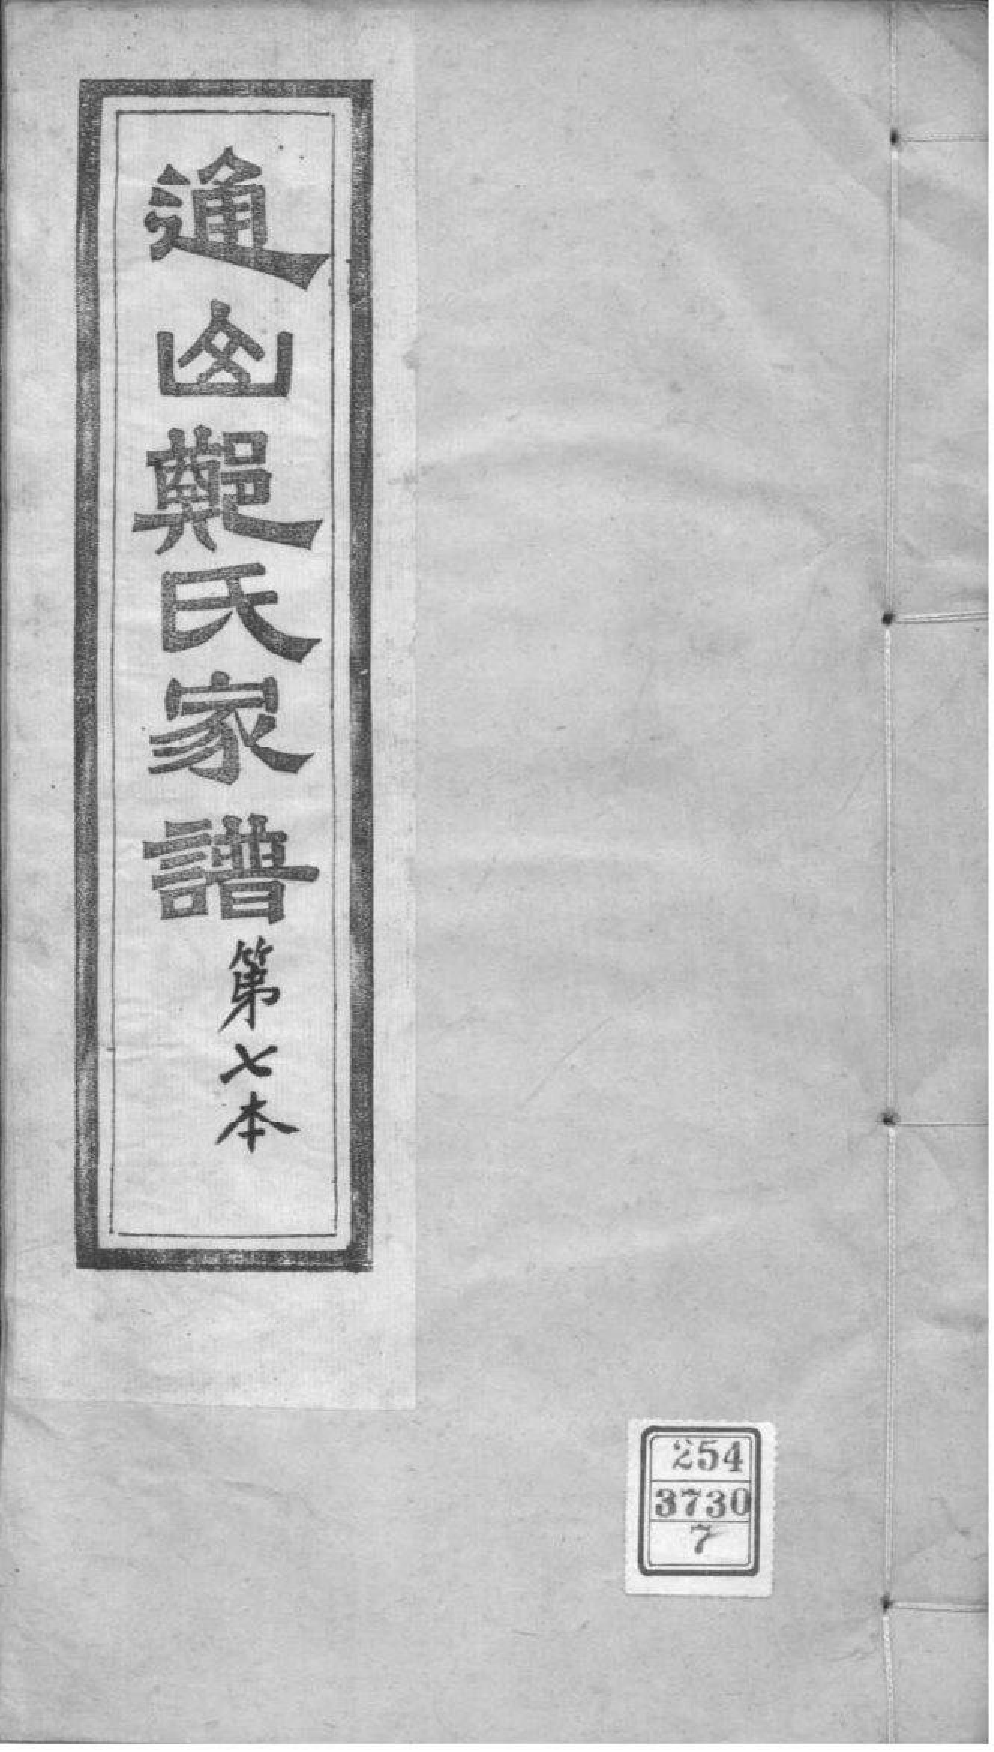 通鄭氏家譜
第七本
254
3730
7